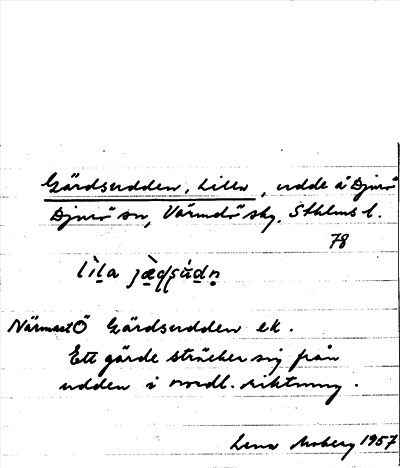 Gärdsudden, Lilla, udde å Djurö
Djurö sn, Värmdö skg. Sthlms l.
78
lìl̠a jæ̀ḍṣu̇́dṇ
Närmast Ö Gärdsudden ek.
Ett gärde sträcker sig från
udden i nordl. riktning.
Lena Moberg 1957